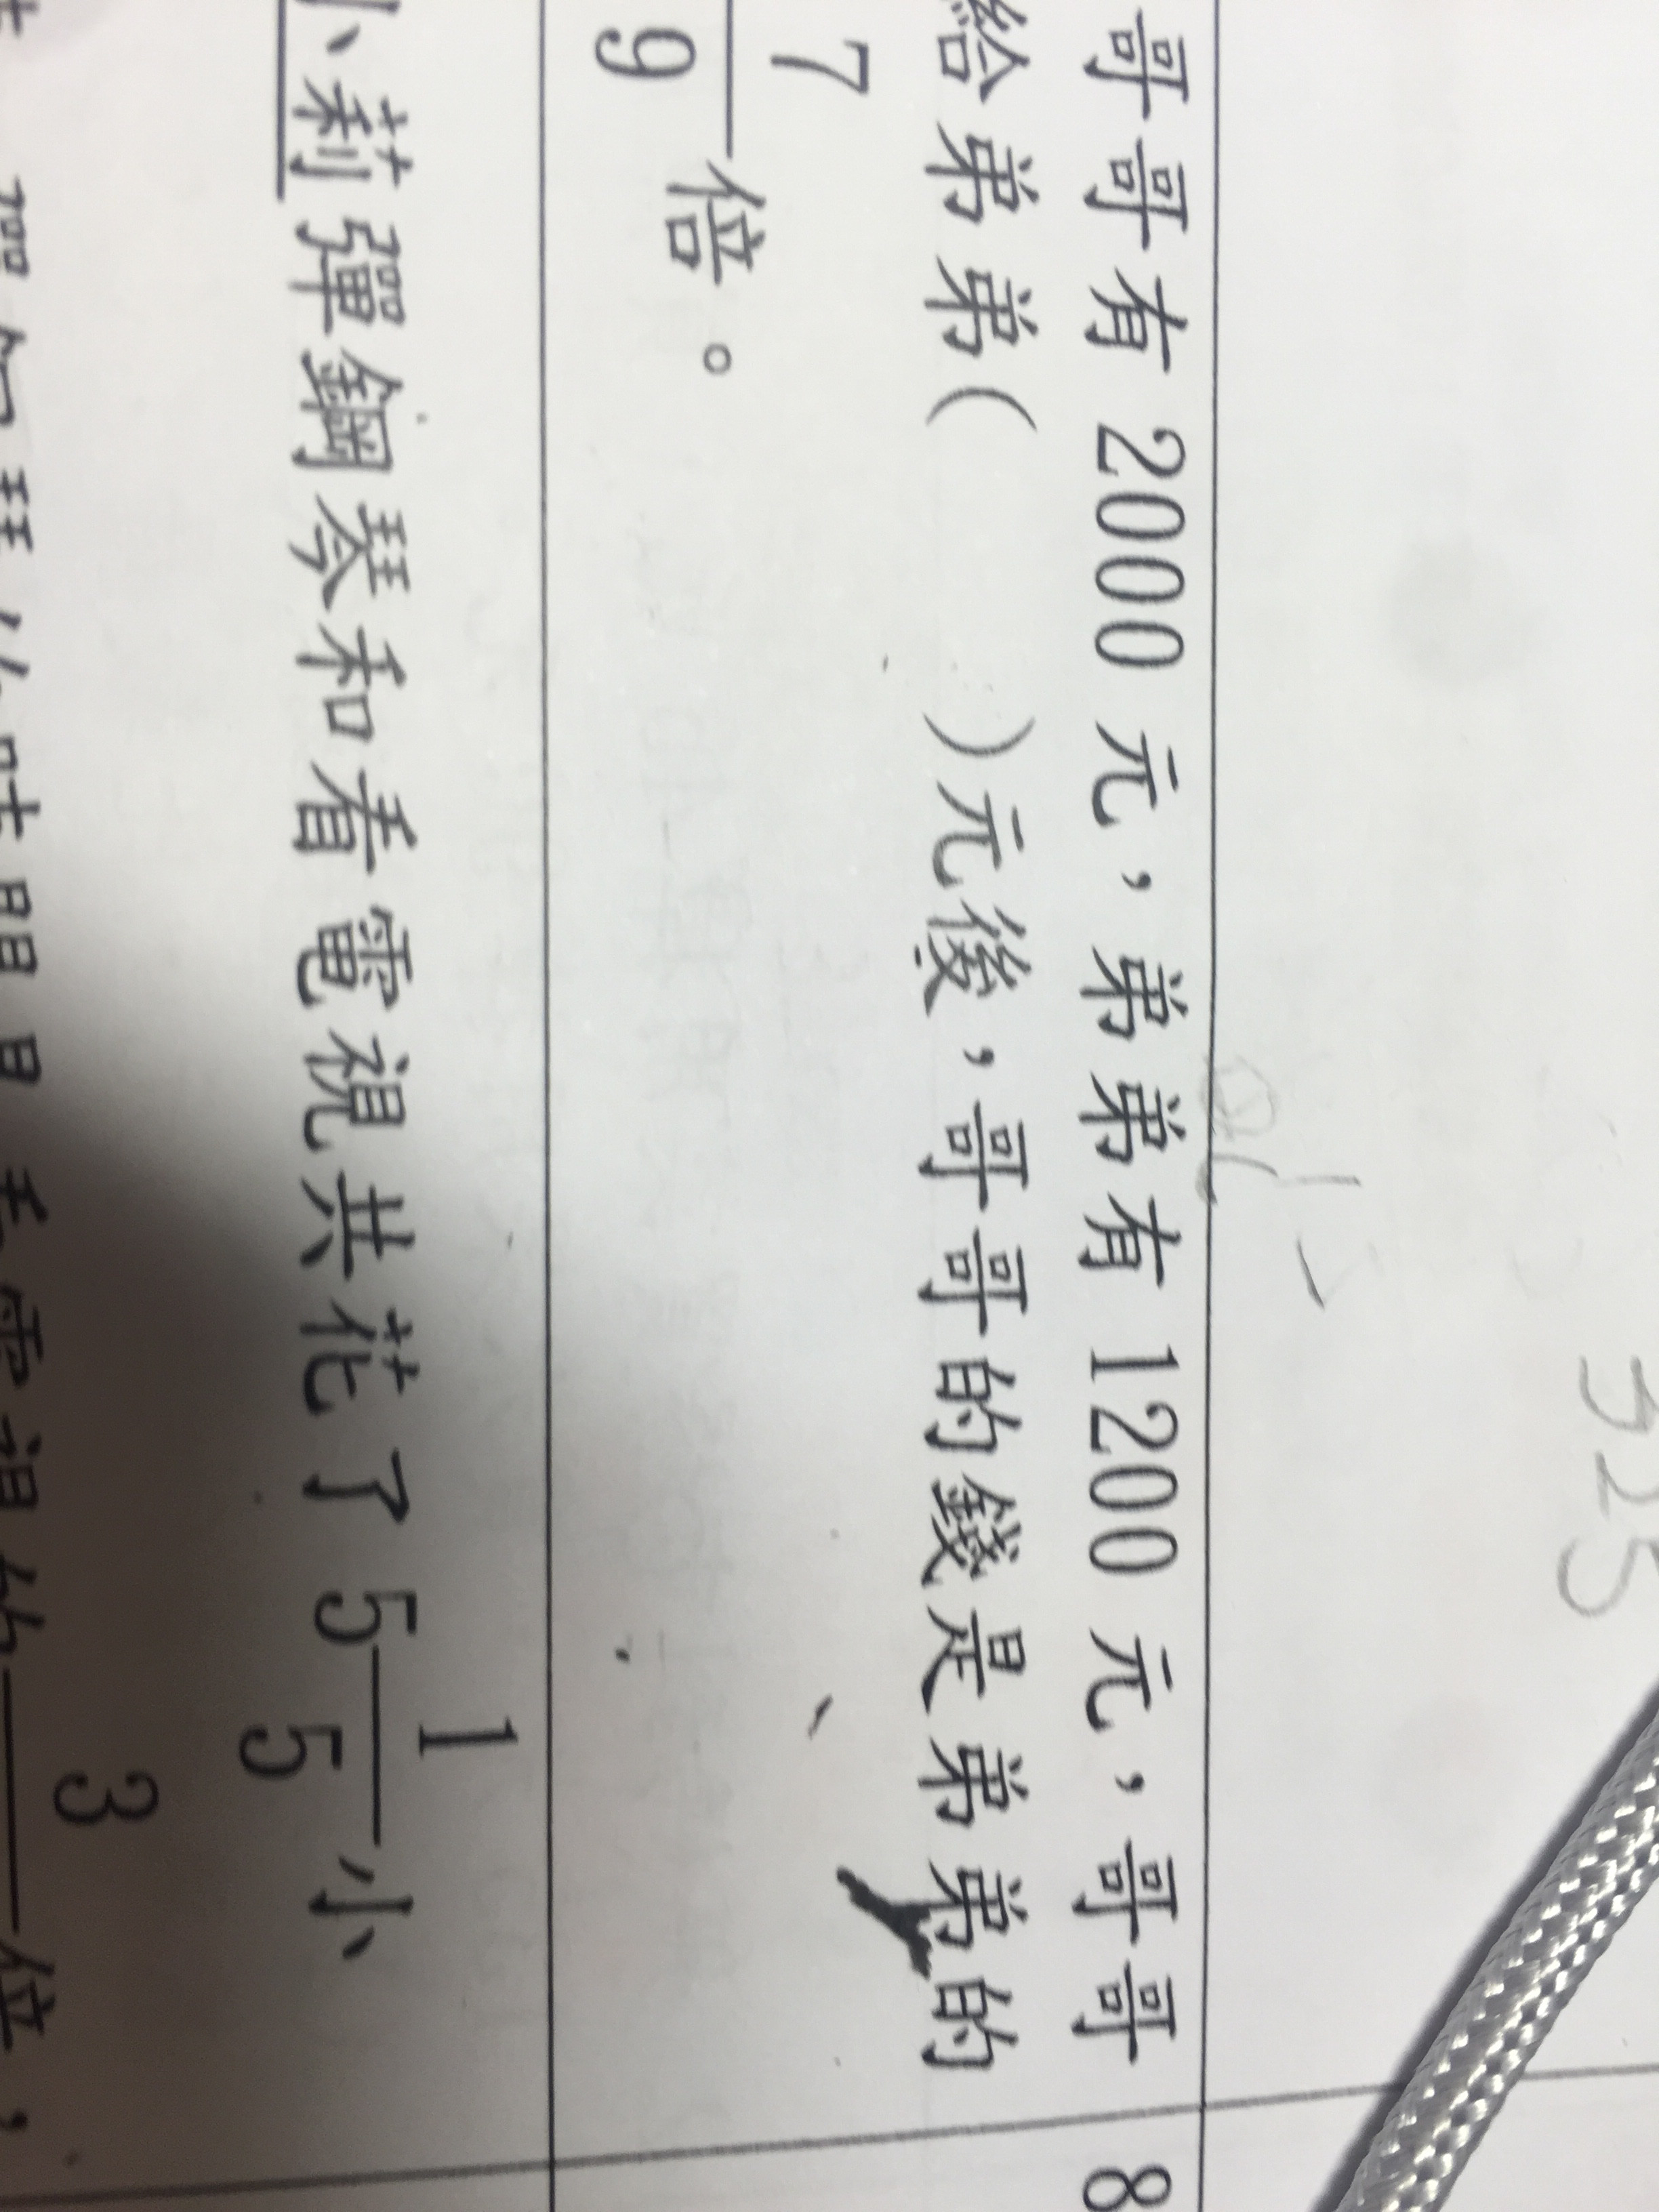 哥哥有 2000 元，弟弟有 1200 元，哥哥
給弟弟(　　)元後，哥哥的錢是弟弟的
7
9
倍。
8
小莉彈鋼琴和看電視共花了 5 1/5 小
3
倍，
525